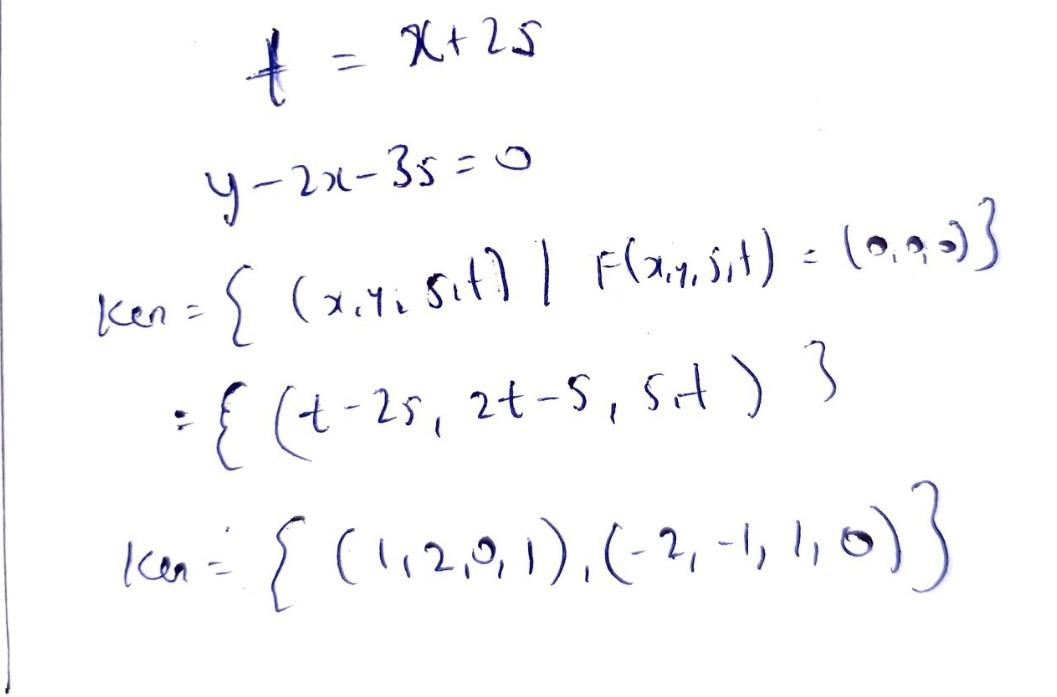 t = x+2s
y-2x-3s=0
Ker = { (x,y,s,t) | F(x,y,s,t) = (0,0,0)}
= { (t-2s, 2t-s, s,t ) }
Ker = { (1,2,0,1), (-2, -1, 1, 0)}